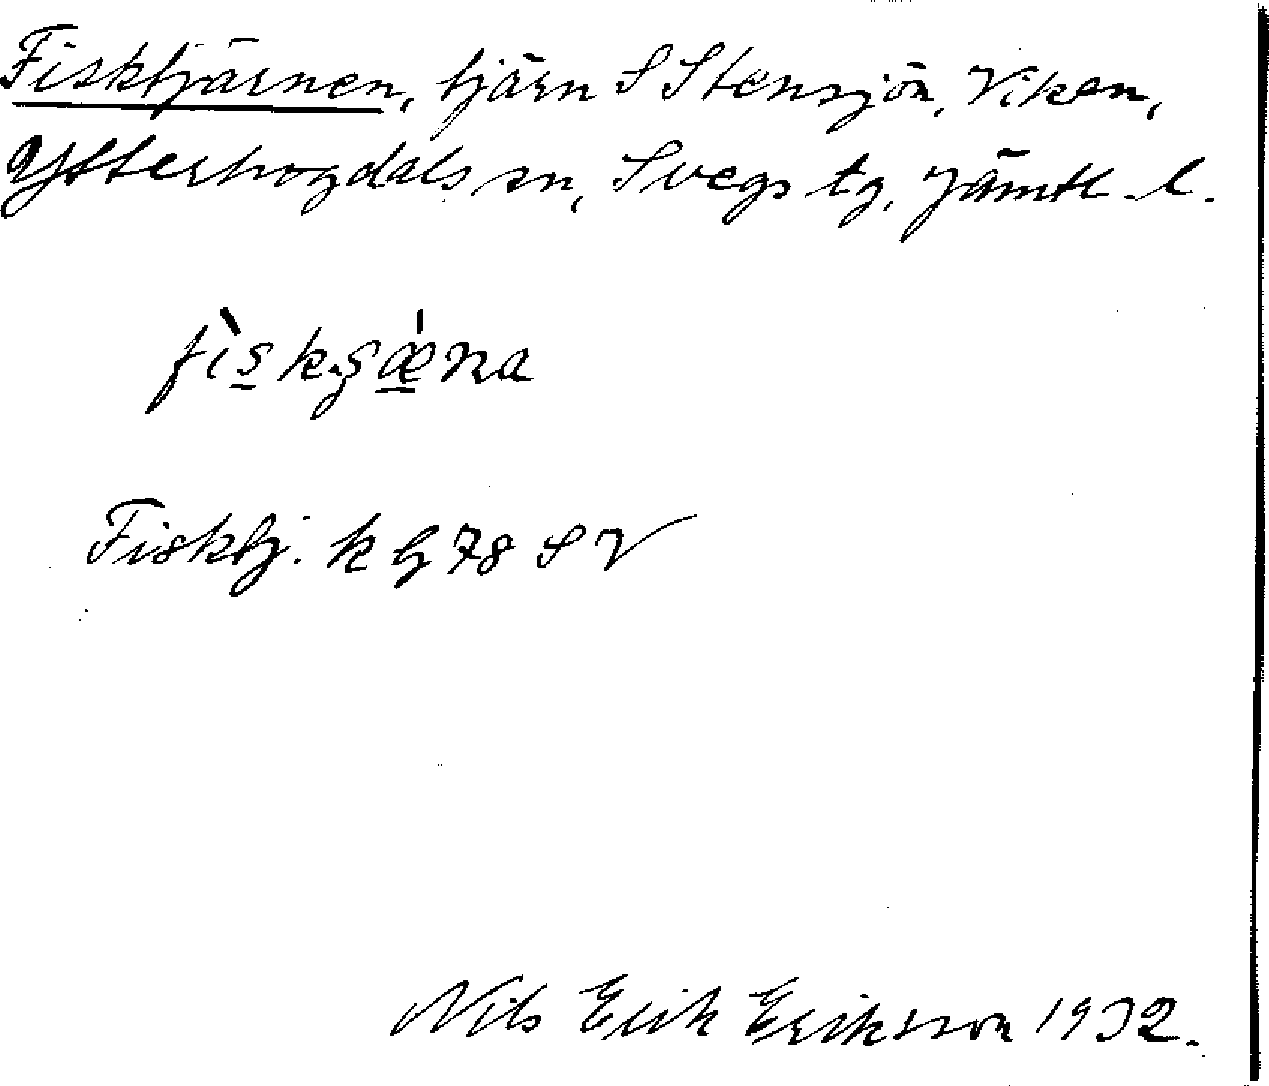 Fisktjärnen, tjärn S Stensjön, Viken,
Ytterhogdals sn, Svegs tg, Jämtl. l.
Fisktj. k bj 78 SV
Nils Erik Eriksson 1932.